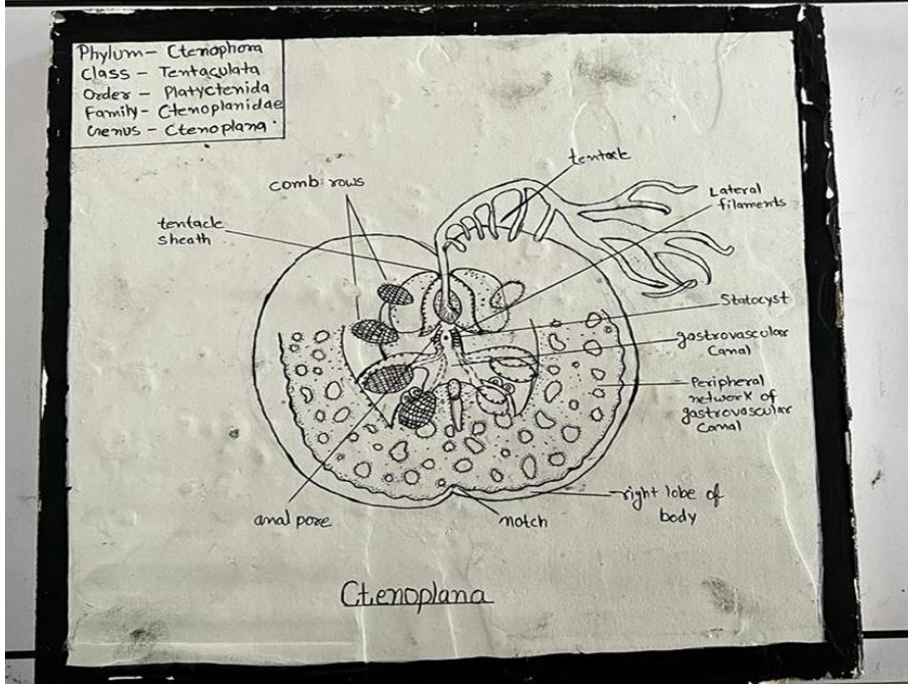 Phylum- Ctenophora
Class - Tentaculata
Order - Platyctenida
Family- Ctenoplanidae
Genus - Ctenoplana
comb rows
tentacle
sheath
tentacle
Lateral
filaments
Statocyst
gastrovascular
Canal
Peripheral
network of
gastrovascular
Canal
right lobe of
body
notch
anal pore
Ctenoplana